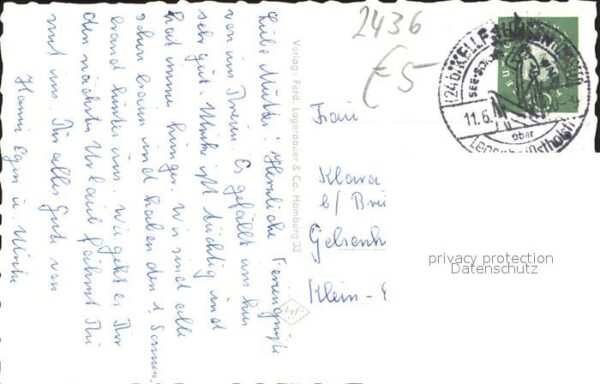 Liebe Mutter! Herzliche Feriengrüße
von uns Dreien. Es gefällt uns hier
sehr gut. Ulrike ißt tüchtig und
hat immer hunger. Wir sind alle
schon braun und haben den 1. Sonnen-
brand hinter uns. Wie geht es Dir
den nächsten Urlaub fährst Du
mit uns. Dir alles Gute von
Hanni Egon u. Ulrike
Verlag: Ferd. Lagerbauer & Co. Hamburg 33
2436
€5
(24b) KELLENHUSEN
11.6.
über
Lensahn (Ostholst)
Frau
Klara
b/ Bri
Gelsenk
Klein-E
privacy protection
Datenschutz